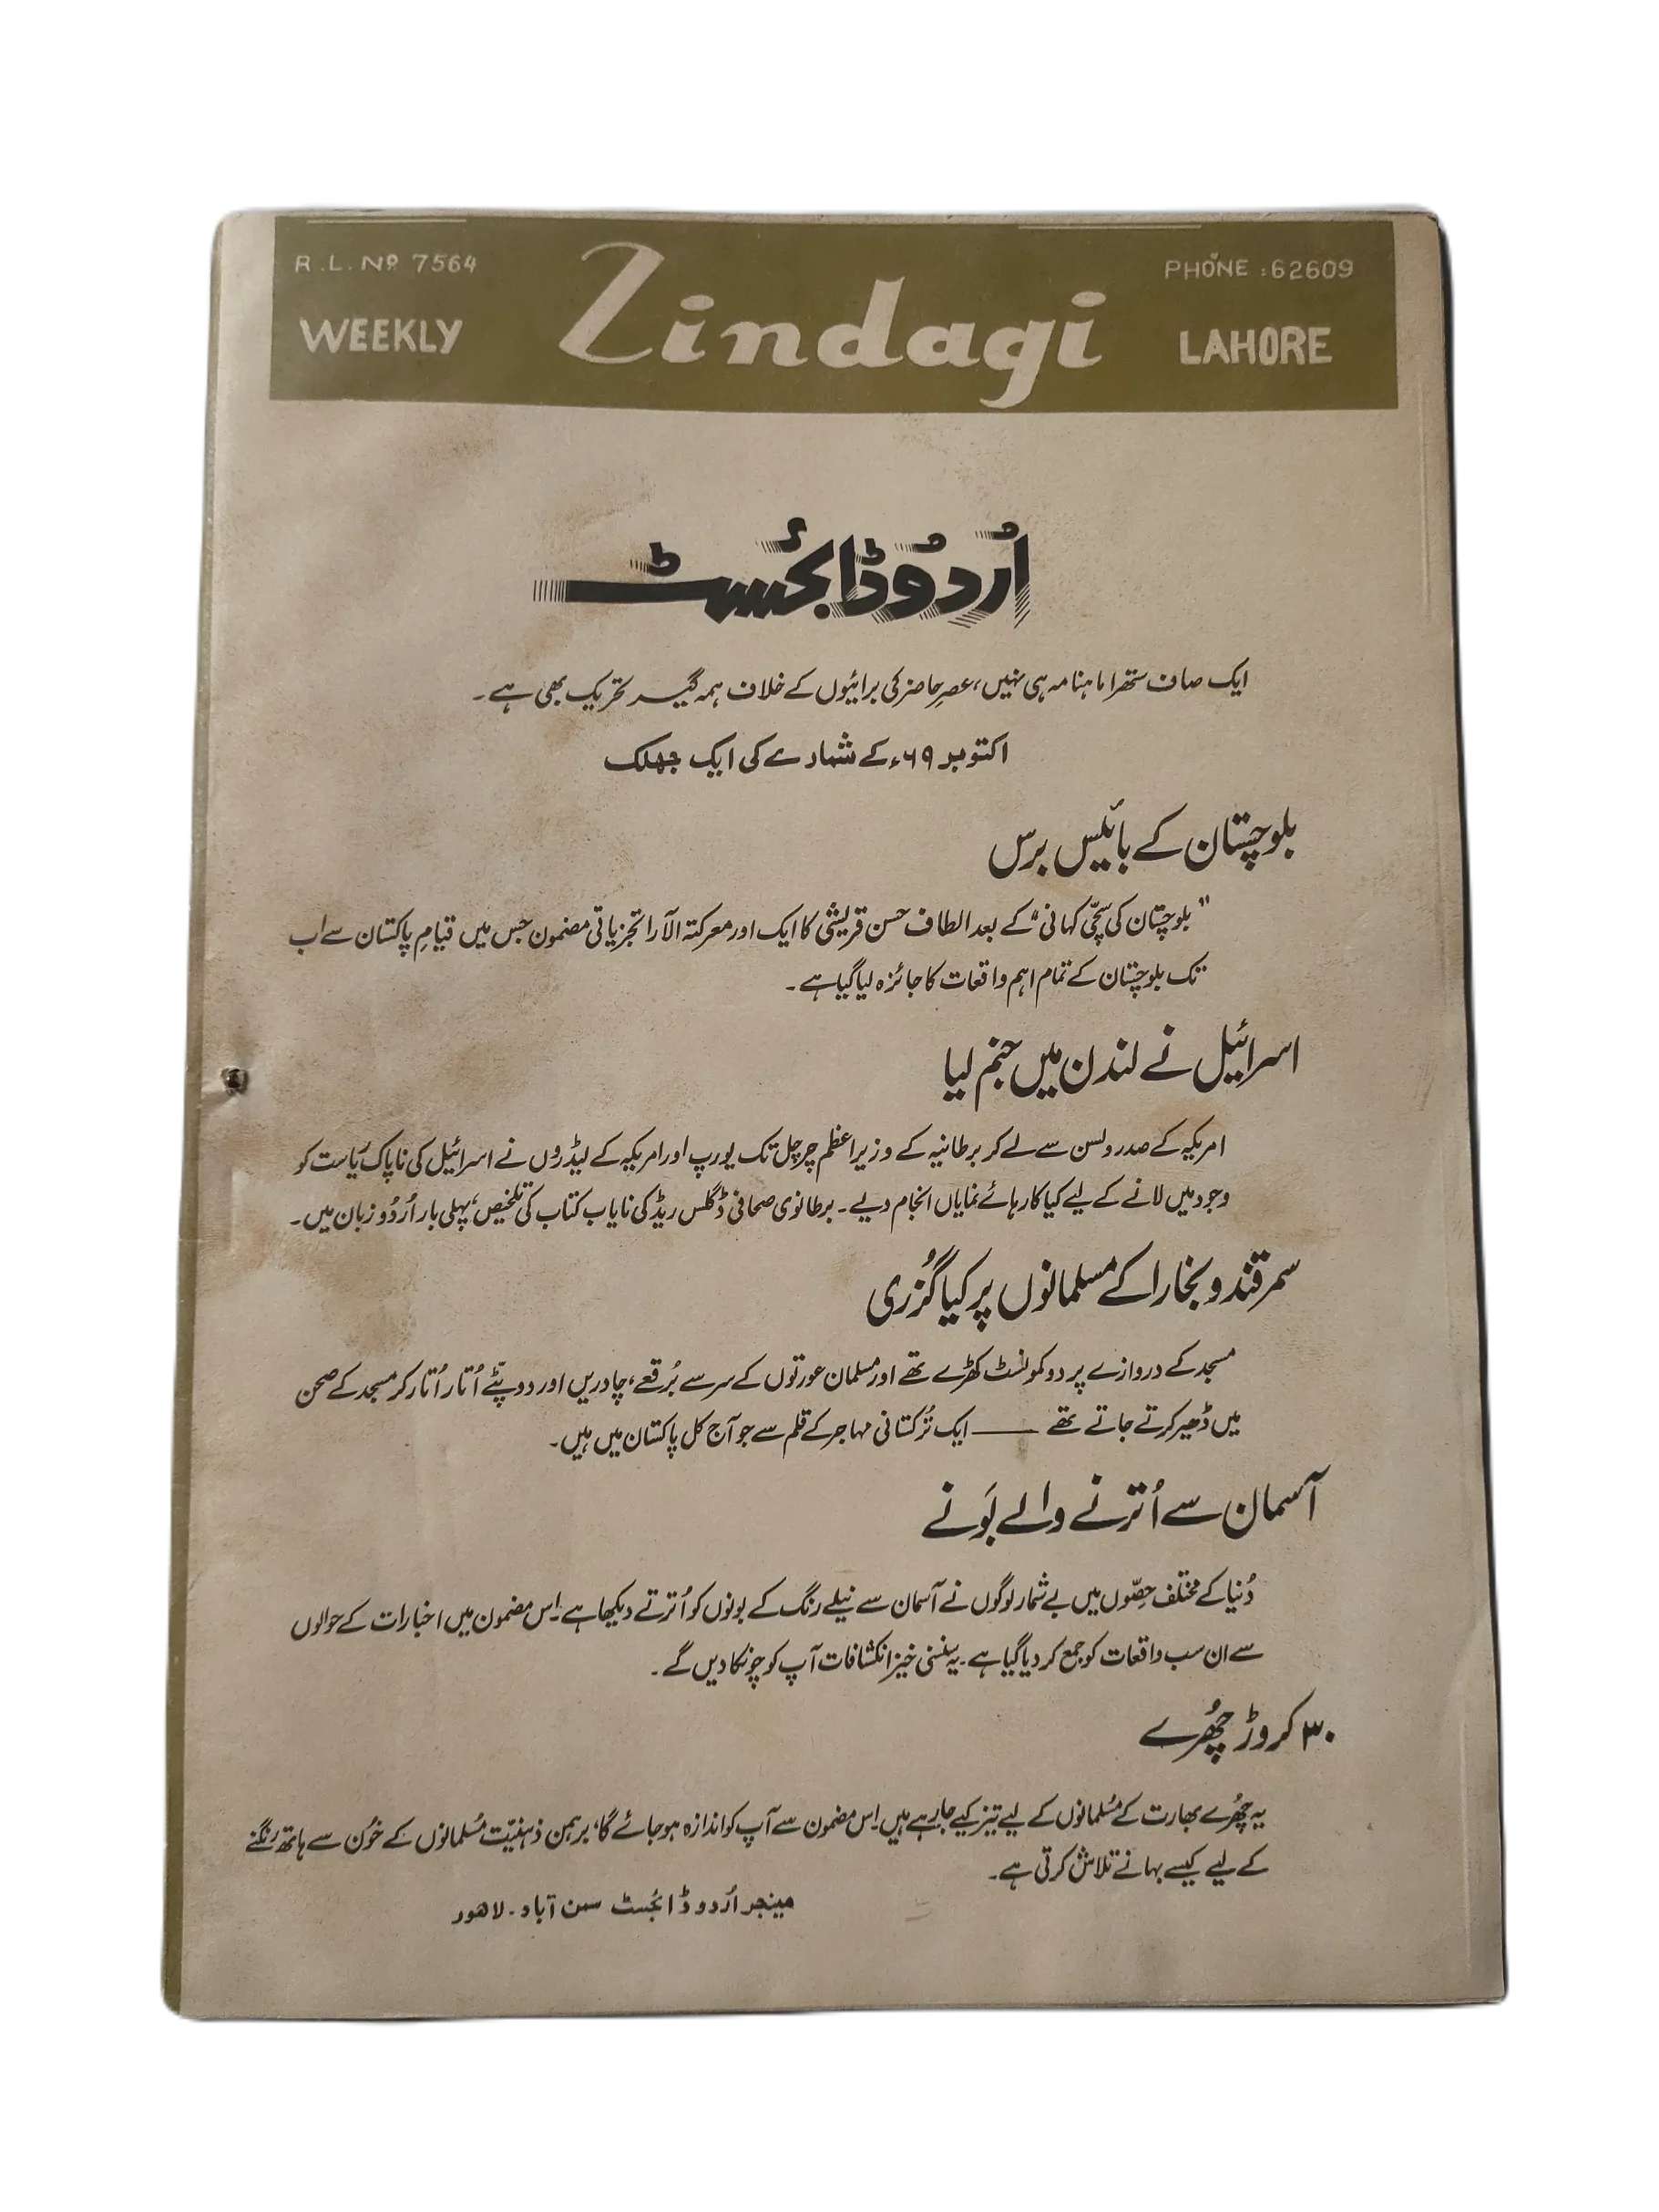 R.L. No 7564
PHONE : 62609
WEEKLY Zindagi LAHORE
اُردُو ڈائجسٹ
ایک صاف ستھرا ماہنامہ ہی نہیں، عصرِ حاضر کی برائیوں کے خلاف ہمہ گیر تحریک بھی ہے۔
اکتوبر ۶۹ء کے شمارے کی ایک جھلک
بلوچستان کے بائیس برس
"بلوچستان کی سچّی کہانی" کے بعد الطاف حسن قریشی کا ایک اور معرکتہ الآرا تجزیاتی مضمون جس میں قیامِ پاکستان سے اب
تک بلوچستان کے تمام اہم واقعات کا جائزہ لیا گیا ہے۔
اسرائیل نے لندن میں جنم لیا
امریکہ کے صدر ولسن سے لے کر برطانیہ کے وزیراعظم چرچل تک یورپ اور امریکہ کے لیڈروں نے اسرائیل کی ناپاک ریاست کو
وجود میں لانے کے لیے کیا کارہائے نمایاں انجام دیے۔ برطانوی صحافی ڈگلس ریڈ کی نایاب کتاب کی تلخیص، پہلی بار اُردُو زبان میں۔
سمرقند و بخارا کے مسلمانوں پر کیا گُزری
مسجد کے دروازے پر دو کمونسٹ کھڑے تھے اور مسلمان عورتوں کے سر سے بُرقعے، چادریں اور دوپٹّے اُتار اُتار کر مسجد کے صحن
میں ڈھیر کرتے جاتے تھے —— ایک تُرکستانی مہاجر کے قلم سے جو آج کل پاکستان میں ہیں۔
آسمان سے اُترنے والے بَونے
دُنیا کے مختلف حِصّوں میں بے شمار لوگوں نے آسمان سے نیلے رنگ کے بونوں کو اُترتے دیکھا ہے۔ اِس مضمون میں اخبارات کے حوالوں
سے ان سب واقعات کو جمع کر دیا گیا ہے۔ یہ سنسنی خیز انکشافات آپ کو چونکا دیں گے۔
۳۰ کروڑ چھُرے
یہ چھُرے بھارت کے مُسلمانوں کے لیے تیز کیے جا رہے ہیں۔ اِس مضمون سے آپ کو اندازہ ہو جائے گا، برہمن ذہنیّت مُسلمانوں کے خُون سے ہاتھ رنگنے
کے لیے کیسے بہانے تلاش کرتی ہے۔
مینجر اُردو ڈائجسٹ سمن آباد۔ لاھور